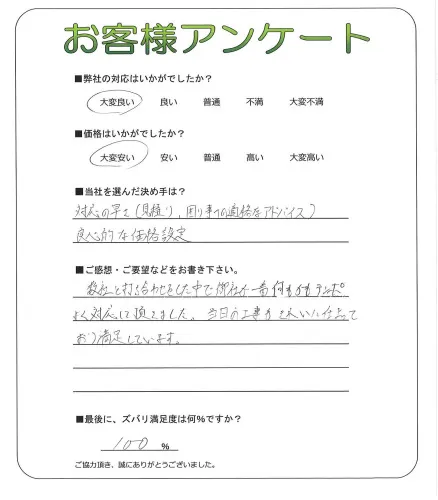 お客様アンケート
■弊社の対応はいかがでしたか？
大変良い 良い 普通 不満 大変不満
■価格はいかがでしたか？
大変安い 安い 普通 高い 大変高い
■当社を選んだ決め手は？
対応の早さ(見積り、困り事への適格なアドバイス)
良心的な価格設定
■ご感想・ご要望などをお書き下さい。
数社と打ち合わせをした中で御社が一番何もかもテンポ
よく対応して頂きました。当日の工事もきれいに仕上って
おり満足しています。
■最後に、ズバリ満足度は何％ですか？
100 ％
ご協力頂き、誠にありがとうございました。